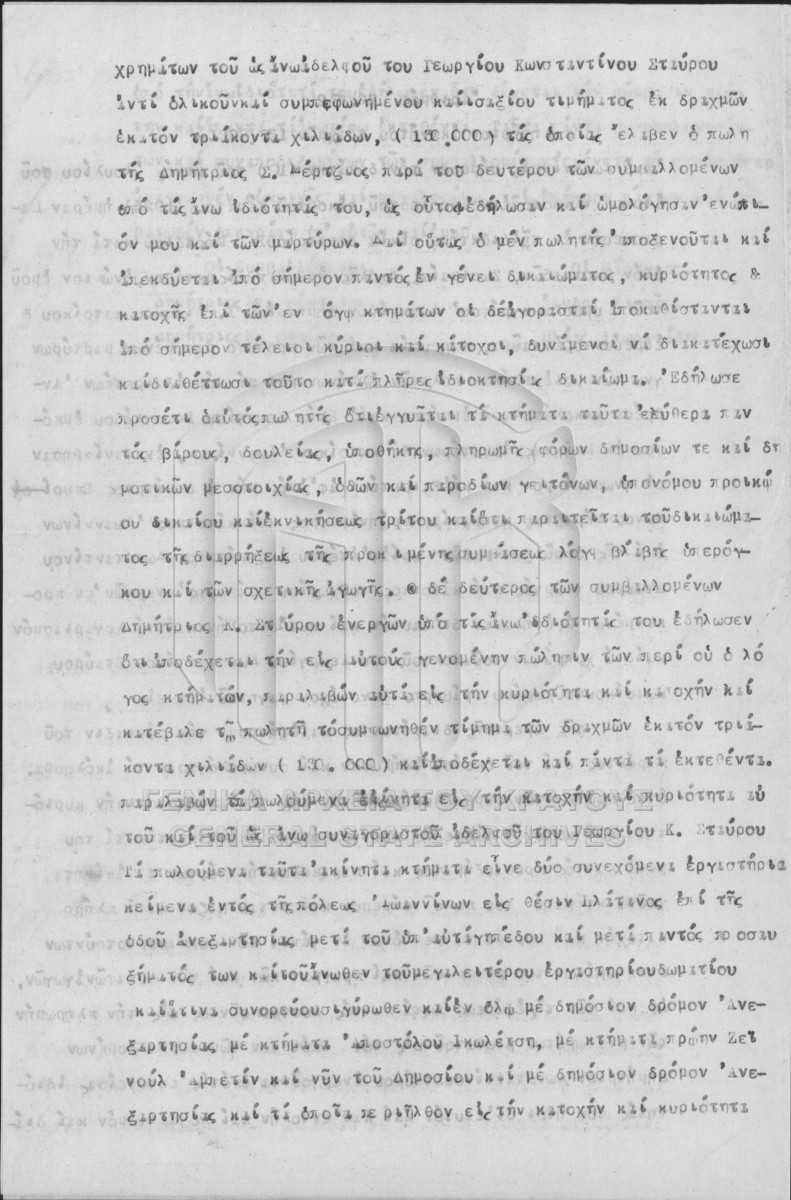 χρημάτων τοῦ ὡς ἄνω ἀδελφοῦ του Γεωργίου Κωνσταντίνου Σταύρου
ἀντί ὁλικοῦ καί συμπεφωνημένου καί ἰσαξίου τιμήματος ἐκ δραχμῶν
ἑκατόν τριάκοντα χιλιάδων, (130.000) τάς ὁποίας ἔλαβεν ὁ πωλη
τής Δημήτριος Σ. Μέρτζιος παρά τοῦ δευτέρου τῶν συμβαλλομένων
ὑπό τάς ἄνω ἰδιότητάς του, ὡς οὗτοι ἐδήλωσαν καί ὡμολόγησαν ἐνώπι-
όν μου καί τῶν μαρτύρων. Διό οὕτως ὁ μέν πωλητής ἀποξενοῦται καί
ἀπεκδύεται ἀπό σήμερον παντός ἐν γένει δικαιώματος, κυριότητος &
κατοχῆς ἐπί τῶν ἐν λόγῳ κτημάτων οἱ δέ ἀγορασταί ἀποκαθίστανται
ἀπό σήμερον τέλειοι κύριοι καί κάτοχοι, δυνάμενοι νά διακατέχωσι
καί διαθέττωσι τοῦτο κατά πλῆρες ἰδιοκτησίας δικαίωμα. Ἐδήλωσε
προσέτι ὁ αὐτός πωλητής ὅτι ἐγγυᾶται τά κτήματα ταῦτα ἐλεύθερα παν
τός βάρους, δουλείας, ὑποθήκης, πληρωμῆς φόρων δημοσίων τε καί δη
μοτικῶν μεσοτοιχίας, ὁδῶν καί παροδίων γειτόνων, ὑπονόμου προικῴ
ου δικαίου καί ἐκνικήσεως τρίτου καί ὅτι παραιτεῖται τοῦ δικαιώμα-
τος τῆς διαρρήξεως τῆς προκειμένης συμβάσεως λόγῳ βλάβης ὑπερόγ-
κου καί τῶν σχετικῆς ἀγωγῆς. Ο δέ δεύτερος τῶν συμβαλλομένων
Δημήτριος Κ. Σταύρου ἐνεργῶν ὑπό τάς ἄνω ἰδιότητάς του ἐδήλωσεν
ὅτι ἀποδέχεται τήν εἰς αὐτούς γενομένην πώλησιν τῶν περί οὗ ὁ λό
γος κτημάτων, παραλαβών αὐτά εἰς τήν κυριότητα καί κατοχήν καί
κατέβαλε τῷ πωλητῇ τό συμφωνηθέν τίμημα τῶν δραχμῶν ἑκατόν τριά
κοντα χιλιάδων (130.000) καί ἀποδέχεται καί πάντα τά ἐκτεθέντα.
παραλαβών τά πωλούμενα ἀκίνητα εἰς τήν κατοχήν καί κυριότητα αὐ
τοῦ καί τοῦ ὡς ἄνω συναγοραστοῦ ἀδελφοῦ του Γεωργίου Κ. Σταύρου
Τά πωλούμενα ταῦτα ἀκίνητα κτήματα εἶνε δύο συνεχόμενα ἐργαστήρια
κείμενα ἐντός τῆς πόλεως Ἰωαννίνων εἰς θέσιν Πλάτανος ἐπί τῆς
ὁδοῦ Ἀνεξαρτησίας μετά τοῦ ὑπ' αὐτά γηπέδου καί μετά παντός προσαυ
ξήματός των καί τοῦ ἄνωθεν τοῦ μεγαλειτέρου ἐργαστηρίου δωματίου
καί ἅτινα συνορεύουσι γύρωθεν καί ἐν ὅλῳ μέ δημόσιον δρόμον Ἀνε-
ξαρτησίας μέ κτήματα Ἀποστόλου μέ κτήματα πρώην Ζεϊ
νούλ Ἀμπετίν καί νῦν τοῦ Δημοσίου καί μέ δημόσιον δρόμον Ἀνε-
ξαρτησίας καί τά ὁποῖα περιῆλθον εἰς τήν κατοχήν καί κυριότητα
ΓΕΝΙΚΑ ΑΡΧΕΙΑ ΤΟΥ ΚΡΑΤΟΥΣ
GENERAL STATE ARCHIVES